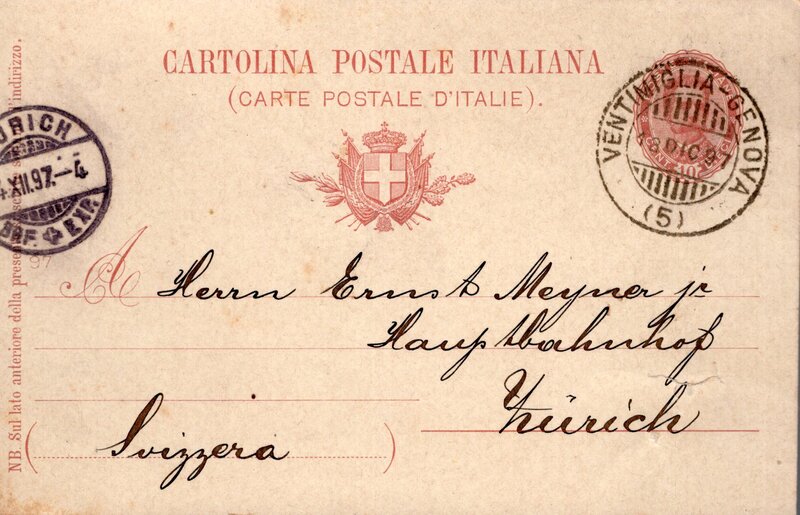 CARTOLINA POSTALE ITALIANA
(CARTE POSTALE D'ITALIE).
VENTIMIGLIA-GENOVA
DIC 97
(5)
XII.97.-4
EXP.
97
A Herrn Ernst Meyner jr
Hauptbahnhof
Zürich
(Svizzera)
NB. Sul lato anteriore della presente l'indirizzo.